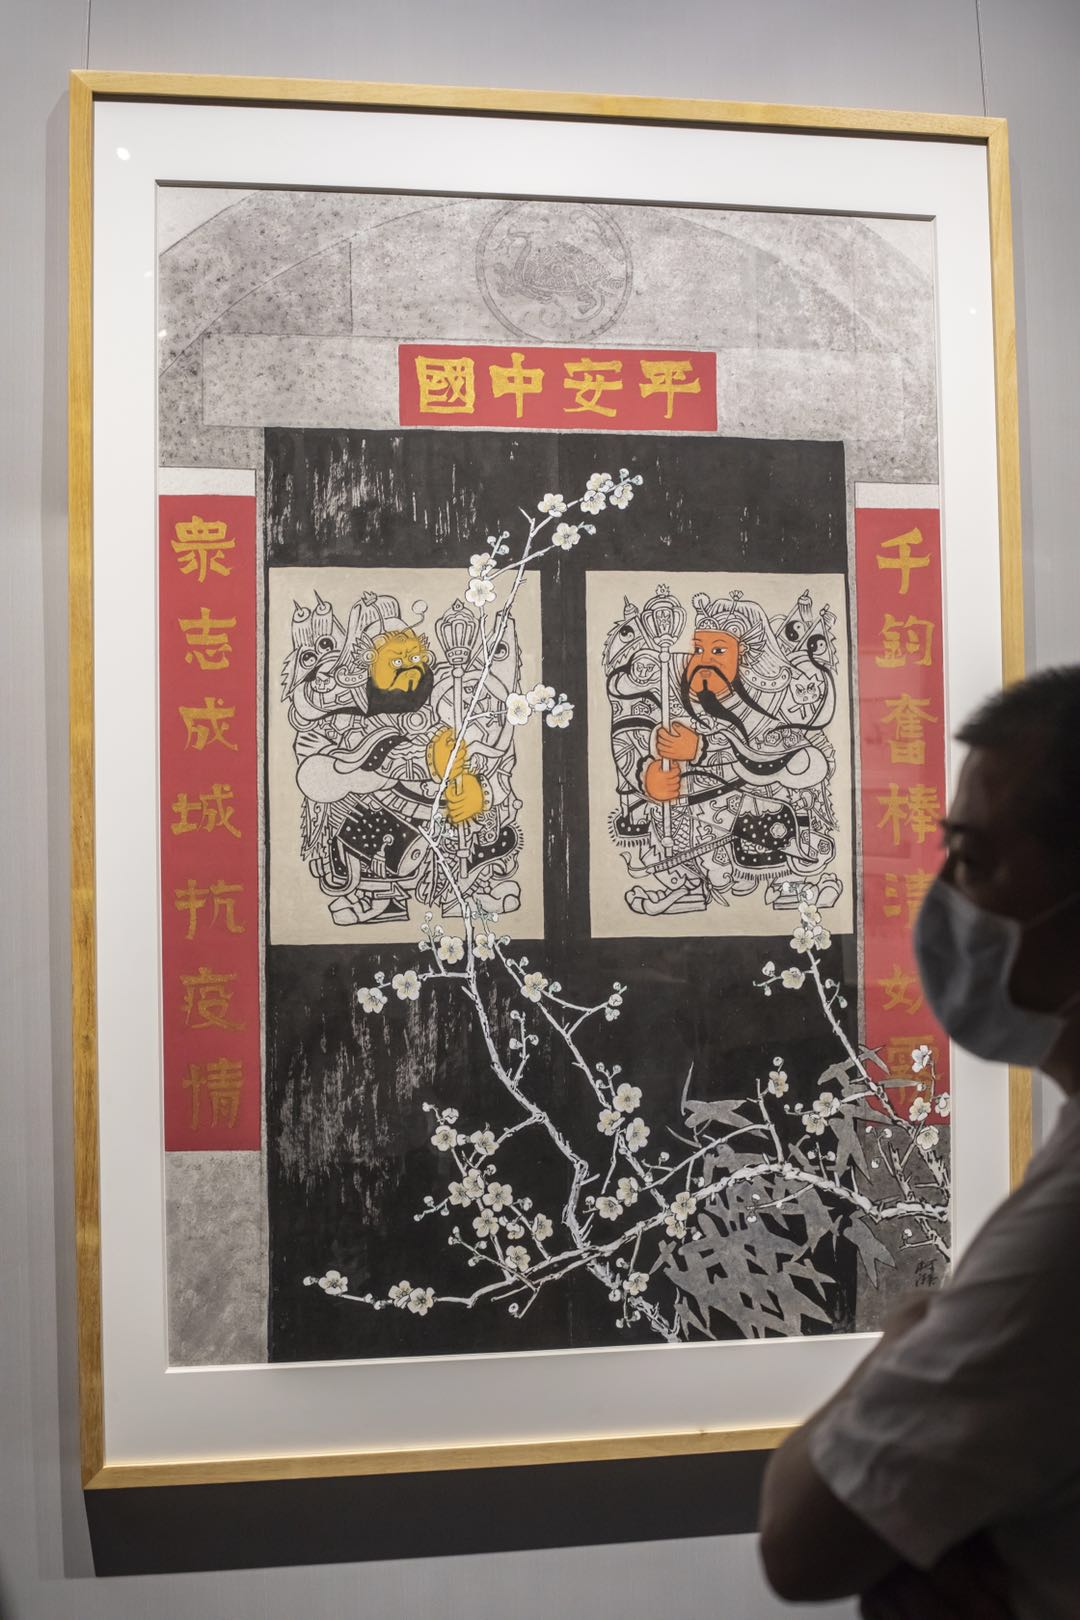 平安中國
千鈞奮棒清妖霧
眾志成城抗疫情